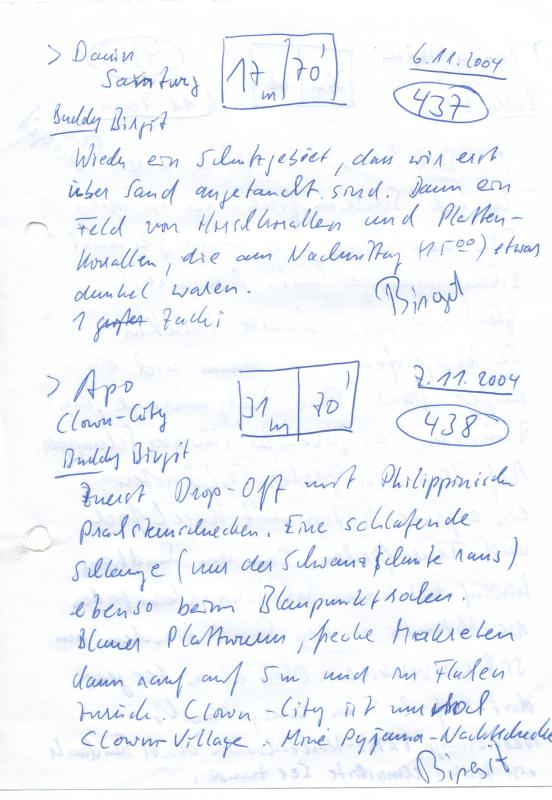 > Dauin 17 m 70' 6.11.2004
437
Buddy Birgit
Wieder ein Schutzgebiet, das wir erst
über Sand angetaucht sind. Dann ein
Feld von Hirschkorallen und Platten-
korallen, die am Nachmittag (15 00) etwas
dunkel waren. Birgit
1 großer Zacki
> Apo 31 m 70' 7.11.2004
Clown-City 438
Buddy Birgit
Zuerst Drop-Off mit Philippinischen
Prachtsternschnecken. Eine schlafende
(nur der Schwanz schaute raus)
ebenso beim Blaupunktrochen.
Blauer Plattwurm, freche Makrelen
dann rauf auf 5m und im Flachen
zurück. Clown-City ist nur noch
Clown-Village. Mini Pyjama-Nacktschnecke
Birgit